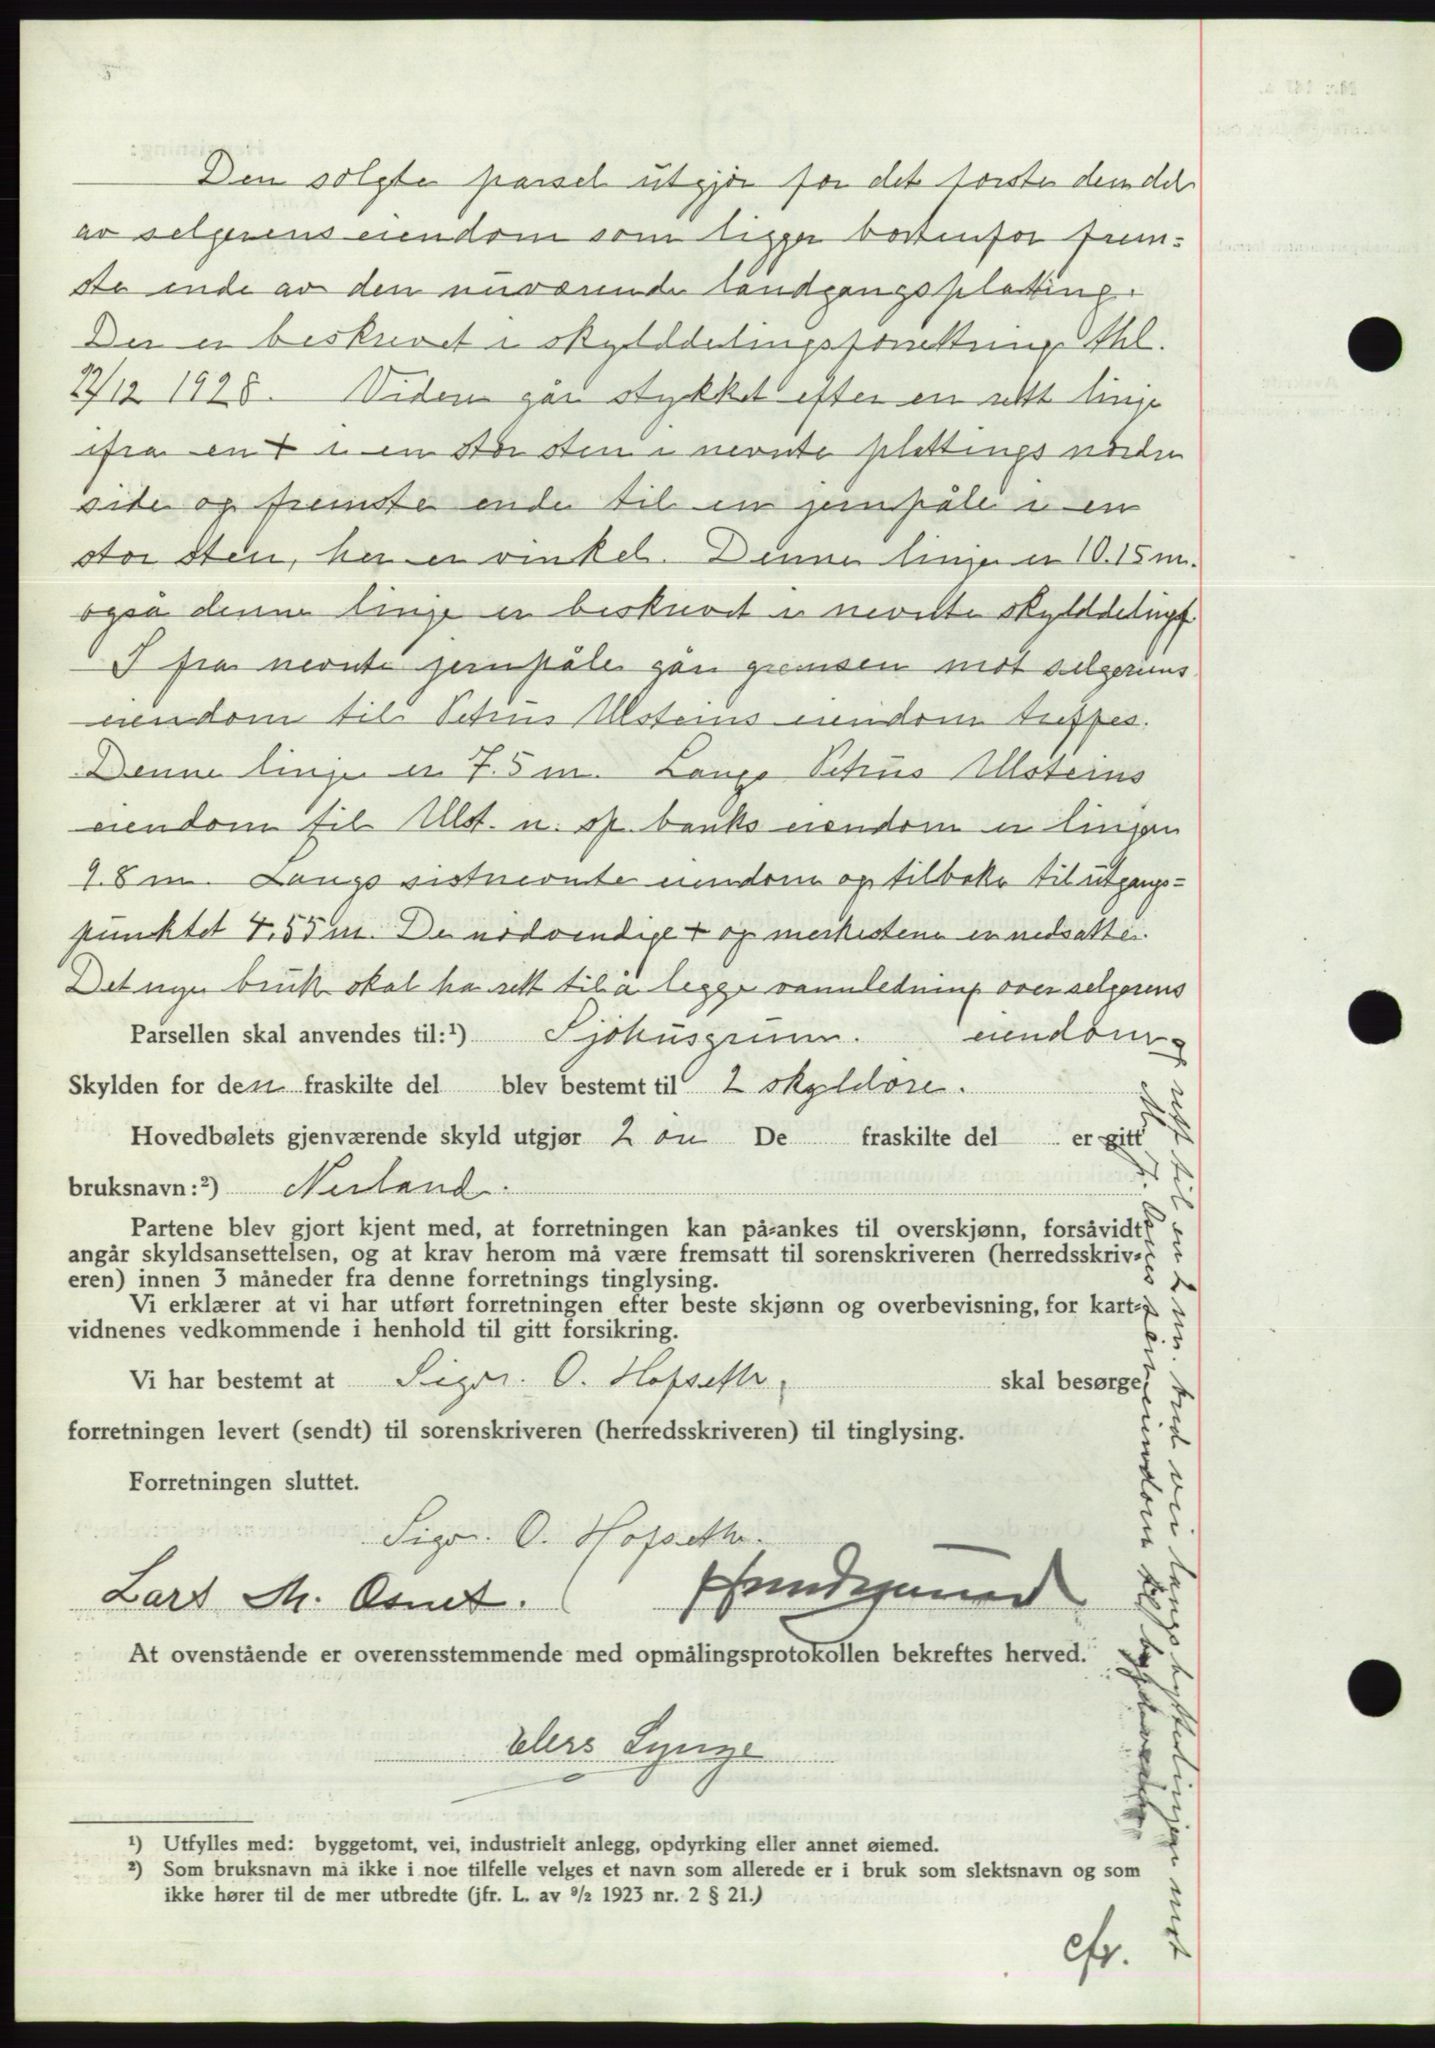 Den solgte parsel utgjør for det første den del
av selgerens eiendom som ligger bortenfor frem-
ste ende av den nuværende landgangsplatting.
Den er beskrevet i skylddelingsforretning thl.
22/12 1928. Videre går stykket efter en rett linje
ifra en + i en stor sten i nevnte plattings nordre
side og fremste ende til en jernpåle i en
stor sten, her er vinkel. Denne linje er 10.15 m.
også denne linje er beskrevet i nevnte skylddelingsf.
I fra nevnte jernpåle går grensen mot selgerens
eiendom til Petrus Ulsteins eiendom treffes.
Denne linje er 7.5 m. Langs Petrus Ulsteins
eiendom til Ulst. n. sp. banks eiendom er linjen
9.8 m. Langs sistnevnte eiendom og tilbake til utgangs=
punktet 4,55 m. De nødvendige + og merkestene er nedsatte.
Det nye bruk skal ha rett til å legge vannledning over selgerens
Parsellen skal anvendes til:¹) Sjøhusgrunn. eiendom og
Skylden for den fraskilte del blev bestemt til 2 skyldøre.
Hovedbølets gjenværende skyld utgjør 2 øre De fraskilte del er gitt
bruksnavn:²) Nerland.
Partene blev gjort kjent med, at forretningen kan på-ankes til overskjønn, forsåvidt
angår skyldsansettelsen, og at krav herom må være fremsatt til sorenskriveren (herredsskriv-
eren) innen 3 måneder fra denne forretnings tinglysing.
Vi erklærer at vi har utført forretningen efter beste skjønn og overbevisning, for kart-
vidnenes vedkommende i henhold til gitt forsikring.
Vi har bestemt at Sigv. O. Hofseth, skal besørge
forretningen levert (sendt) til sorenskriveren (herredsskriveren) til tinglysing.
Forretningen sluttet.
Sigv. O. Hofseth.
Lars M. Osnes.
At ovenstående er overensstemmende med opmålingsprotokollen bekreftes herved.
Elers Lynge
¹) Utfylles med: byggetomt, vei, industrielt anlegg, opdyrking eller annet øiemed.
²) Som bruksnavn må ikke i noe tilfelle velges et navn som allerede er i bruk som slektsnavn og som
ikke hører til de mer utbredte (jfr. L. av 9/2 1923 nr. 2 § 21.)
cfr.
rett til en 2 m. bred vei langs byttelinjen mot
M. F. Osnes sin eiendom til bygdeveien